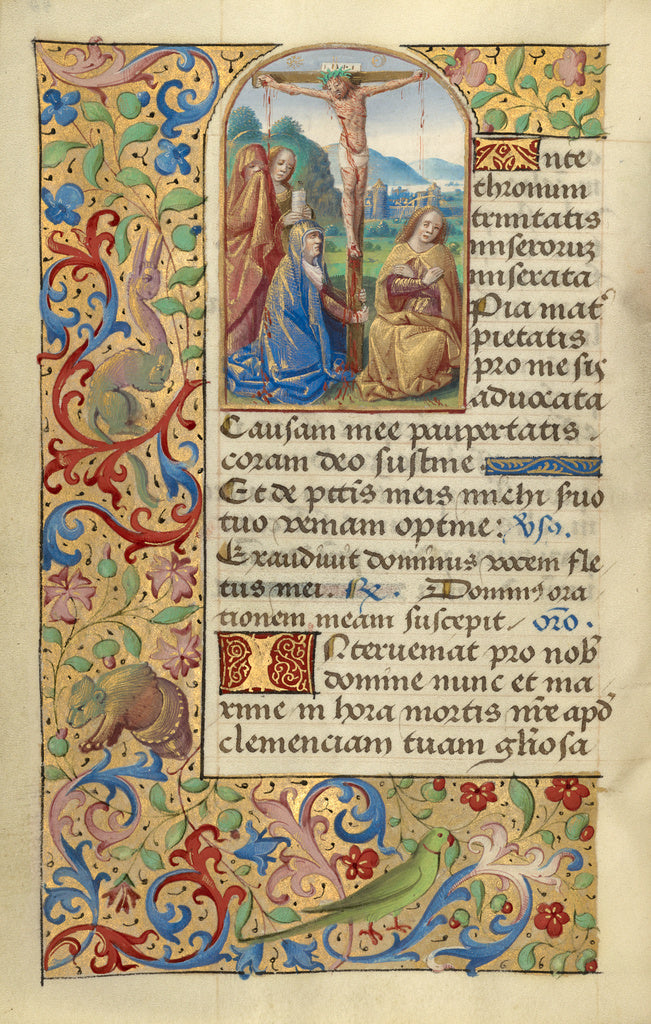 I.N.R.I
Ante
thronum
trinitatis
miserorum
miserata
Pia mat
pietatis
pro me sis
aduocata
Causam mee paupertatis
coram deo sustine
Et de pctis meis michi suo
tuo veniam optine: vso.
Exaudiuit dominus vocem fle
tus mei. Rx. Dominus ora
tionem meam suscepit oro.
Interueniat pro nob
domine nunc et ma
xime in hora mortis nre apd
clemenciam tuam gliosa